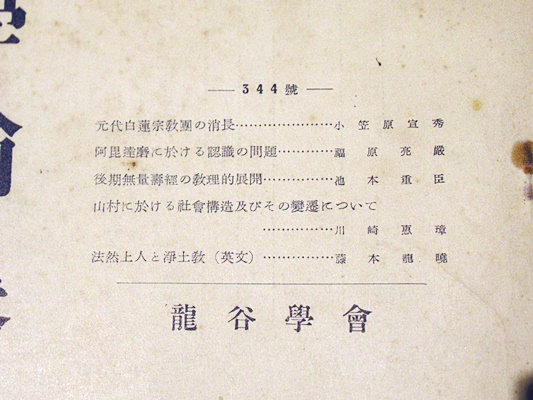 344號
元代白蓮宗教團の消長……………………小笠原宣秀
阿毘達磨に於ける認識の問題……………福原亮嚴
後期無量壽經の教理的展開………………池本重臣
山村に於ける社會構造及びその變遷について
……………川崎惠璋
法然上人と淨土教（英文）………………藤本龍曉
龍谷學會
學論